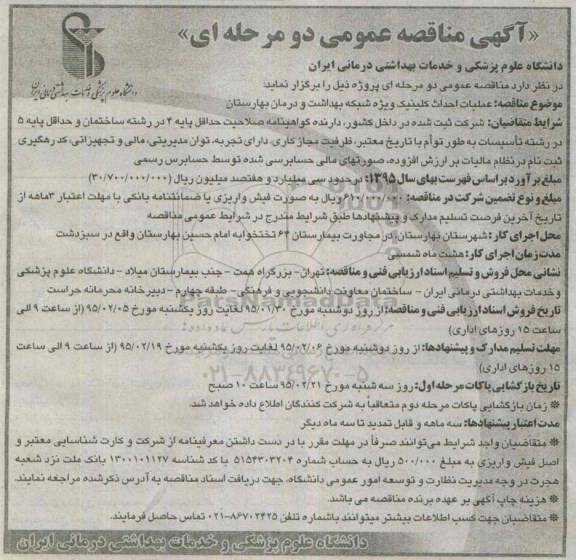 «آگهی مناقصه عمومی دو مرحله ای»
دانشگاه علوم پزشکی و خدمات بهداشتی درمانی ایران
دانشگاه علوم پزشکی و خدمات بهداشتی درمانی ایران
در نظر دارد مناقصه عمومی دو مرحله ای پروژه ذیل را برگزار نماید:
موضوع مناقصه: عملیات احداث کلینیک ویژه شبکه بهداشت و درمان بهارستان
شرایط متقاضیان: شرکت ثبت شده در داخل کشور، دارنده گواهینامه صلاحیت حداقل پایه ۴ در رشته ساختمان و حداقل پایه ۵
در رشته تأسیسات به طور توأم با تاریخ معتبر، ظرفیت مجاز کاری، دارای تجربه، توان مدیریتی، مالی و تجهیزاتی، کد رهگیری
ثبت نام در نظام مالیات بر ارزش افزوده، صورتهای مالی حسابرسی شده توسط حسابرس رسمی
مبلغ برآورد بر اساس فهرست بهای سال ۱۳۹۵: در حدود سی میلیارد و هفتصد میلیون ریال (۳۰/۷۰۰/۰۰۰/۰۰۰)
مبلغ و نوع تضمین شرکت در مناقصه: ریال به صورت فیش واریزی یا ضمانتنامه بانکی با مهلت اعتبار ۳ماهه از
تاریخ آخرین فرصت تسلیم مدارک و پیشنهادها طبق شرایط مندرج در شرایط عمومی مناقصه
محل اجرای کار: شهرستان بهارستان، در مجاورت بیمارستان ۶۴ تختخوابه امام حسین بهارستان واقع در سبزدشت
مدت زمان اجرای کار: هشت ماه شمسی
نشانی محل فروش و تسلیم اسناد ارزیابی فنی و مناقصه: تهران - بزرگراه همت - جنب بیمارستان میلاد - دانشگاه علوم پزشکی
و خدمات بهداشتی درمانی ایران - ساختمان معاونت دانشجویی و فرهنگی - طبقه چهارم - دبیرخانه محرمانه حراست
تاریخ فروش اسناد ارزیابی فنی و مناقصه: از روز دوشنبه مورخ ۹۵/۰۱/۳۰ لغایت روز یکشنبه مورخ ۹۵/۰۲/۰۵ (از ساعت ۹ الی
ساعت ۱۵ روزهای اداری)
مهلت تسلیم مدارک و پیشنهادها: از روز دوشنبه مورخ ۹۵/۰۲/۰۶ لغایت روز یکشنبه مورخ ۹۵/۰۲/۱۹ (از ساعت ۹ الی ساعت
۱۵ روزهای اداری)
تاریخ بازگشایی پاکات مرحله اول: روز سه شنبه مورخ ۹۵/۰۲/۲۱ ساعت ۱۰ صبح
※ زمان بازگشایی پاکات مرحله دوم متعاقباً به شرکت کنندگان اطلاع داده خواهد شد.
مدت اعتبار پیشنهادها: سه ماهه و قابل تمدید تا سه ماه دیگر
※ متقاضیان واجد شرایط می‌توانند صرفاً در مهلت مقرر با در دست داشتن معرفینامه از شرکت و کارت شناسایی معتبر و
اصل فیش واریزی به مبلغ ۵۰۰/۰۰۰ ریال به حساب شماره ۵۱۵۴۳۰۳۲۰۴ با کد شناسه ۱۳۰۰۱۰۱۱۲۷ بانک ملت نزد شعبه
هجرت در وجه مدیریت نظارت و توسعه امور عمومی دانشگاه، جهت دریافت اسناد مناقصه به آدرس ذکرشده مراجعه نمایند.
※ هزینه چاپ آگهی بر عهده برنده مناقصه می باشد.
※ متقاضیان جهت کسب اطلاعات بیشتر میتوانند باشماره تلفن ۸۶۷۰۲۴۲۵-۰۲۱ تماس حاصل فرمایند.
دانشگاه علوم پزشکی و خدمات بهداشتی درمانی ایران
ParsNamadData
۰۲۱-۸۸۳۴۹۶۷۰-۵